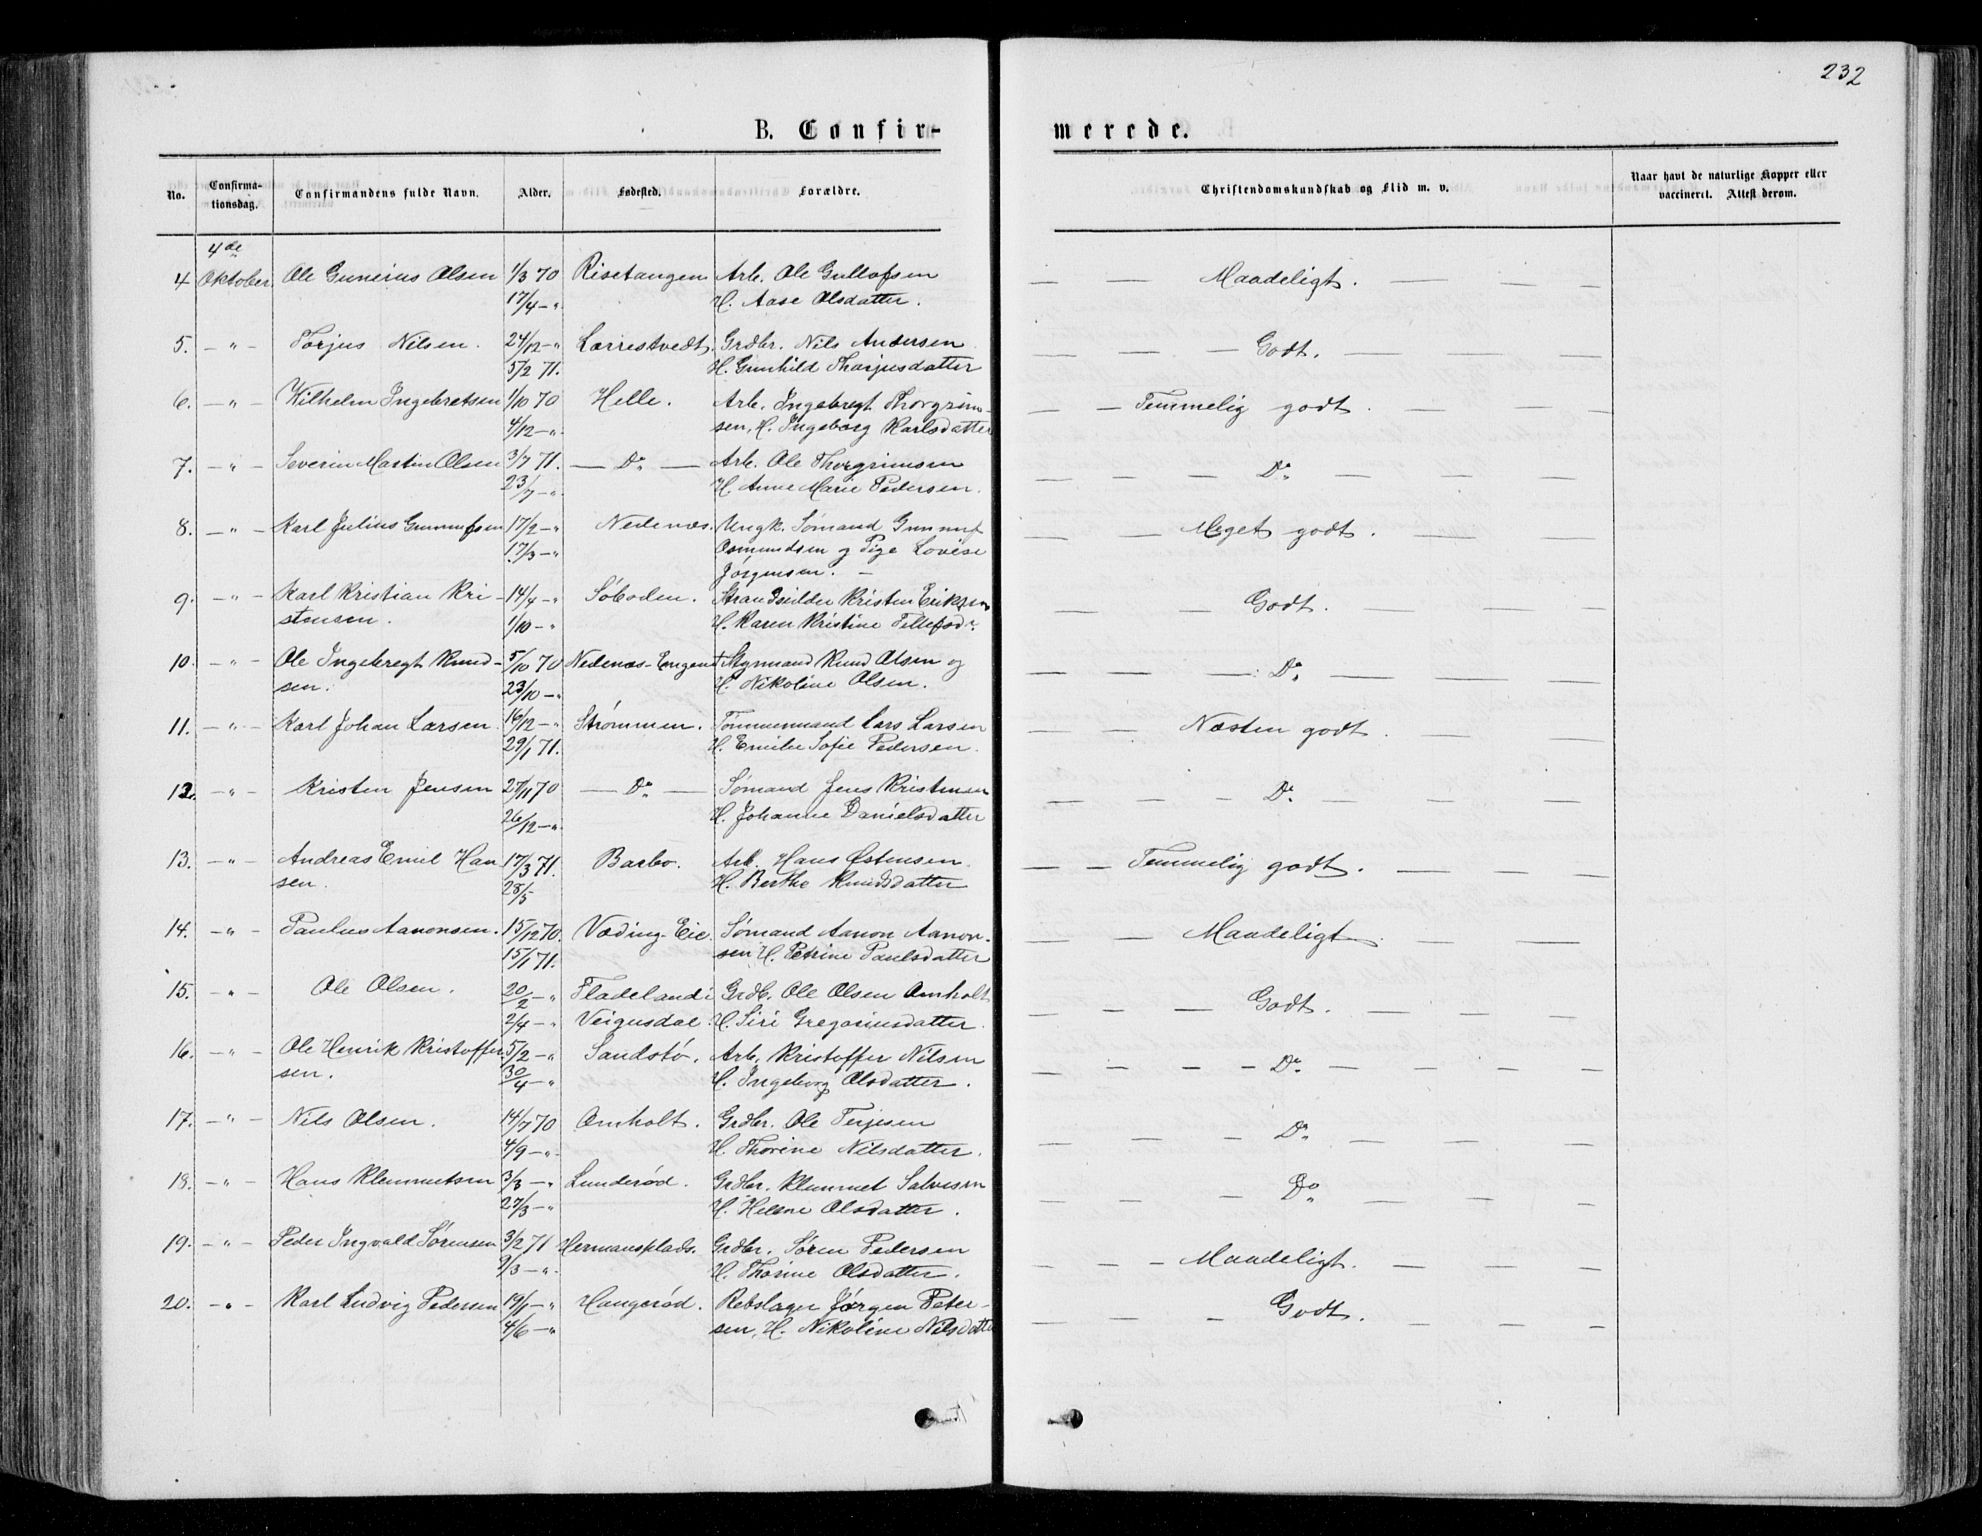 232
B. Confir-
merede.
No.
Confirma-
tionsdag.
Confirmandens fulde Navn.
Alder.
Fødested.
Forældre.
Christendomskundskab og Flid m. v.
Naar havt de naturlige Kopper eller
vaccineret. Attest derom.
4de
4 Oktober. Ole Gunerius Olsen 1/3 70 Risetangen Arb. Ole Gullofsen — — Maadeligt. — — —
17/4 - „ H. Aase Olsdatter.
5. — „ — Torjus Nilsen. 24/12 - „ Lærrestvedt. Grdbr. Nils Andersen — — — Godt. — — —
5/2 71. H. Gunhild Thorjusdatter
6. — „ — Wilhelm Ingebretsen 1/10 70 Helle. Arb. Ingebregt Thorgrim- — — Temmelig godt. — — —
4/12 - „ sen, H. Ingeborg Karlsdatter
7. — „ — Severin Martin Olsen 3/7 71. — Do — Arb. Ole Thorgrimsen — — — Do — — —
23/7 - „ H. Anne Marie Pedersen.
8. — „ — Karl Julius Gunnufsen 17/2 - „ Nedenæs. Ungk. Sømand Gunnuf — — Meget godt. — — —
17/3 - „ Osmundsen og Pige Lovise
Jørgensen. —
9. — „ — Karl Kristian Kri- 14/4 - „ Søboden. Strandsidder Kristen Eriksen — — Godt. — — —
stensen. 1/10 - „ H. Karen Kristine Tellefsdr.
10. — „ — Ole Ingebregt Knud- 5/10 70 Nedenæs-Engene Styrmand Knud Olsen og — — — Do — — —
sen. 23/10 - „ H. Nikoline Olsen.
11. — „ — Karl Johan Larsen 16/12 - „ Strømmen. Tømmermand Lars Larsen — — Næsten godt. — — —
29/1 71. H. Emilie Sofie Pedersen.
12. — „ — Kristen Jensen 27/11 70 — Do — Sømand Jens Kristensen — — — Do — — —
26/12 - „ H. Johanne Danielsdatter
13. — „ — Andreas Emil Han 17/3 71. Barbo. Arb. Hans Østensen — — Temmelig godt. — — —
sen. 28/5 H. Berthe Knudsdatter
14. — „ — Paulus Aanonsen. 15/12 70. Væding-Eie. Sømand Aanon Aanon- — — Maadeligt — — —
15/1 71. sen H. Petrine Paulsdatter
15. — „ — Ole Olsen. 20/2 - „ Fladeland i Grdb. Ole Olsen Omholt — — Godt. — — —
2/4 - „ Veigusdal. H. Siri Gregoriusdatter.
16. — „ — Ole Henrik Kristoffer 5/2 - „ Sandstø. Arb. Kristoffer Nilsen — — — Do — — —
sen. 30/4 - „ H. Ingeborg Olsdatter.
17. — „ — Nils Olsen. 14/7 70 Omholt. Grdbr. Ole Terjesen — — — Do — — —
4/9 - „ H. Thorine Nilsdatter.
18. — „ — Hans Klemmetsen 3/3 - „ Lunderød. Grdbr. Klemmet Salvesen — — — Do — — —
27/3 - „ H. Helene Olsdatter.
19. — „ — Peder Ingvald Sørensen 3/2 71 Hermansplads. Grdbr. Søren Pedersen — — — Maadeligt. — — —
9/3 - „ H. Thorine Olsdatter.
20. — „ — Karl Ludvig Pedersen 19/1 - „ Haugerød. Rebslager Jørgen Peter- — — — Godt. — — —
4/6 - „ sen, H. Nikoline Nilsdatter